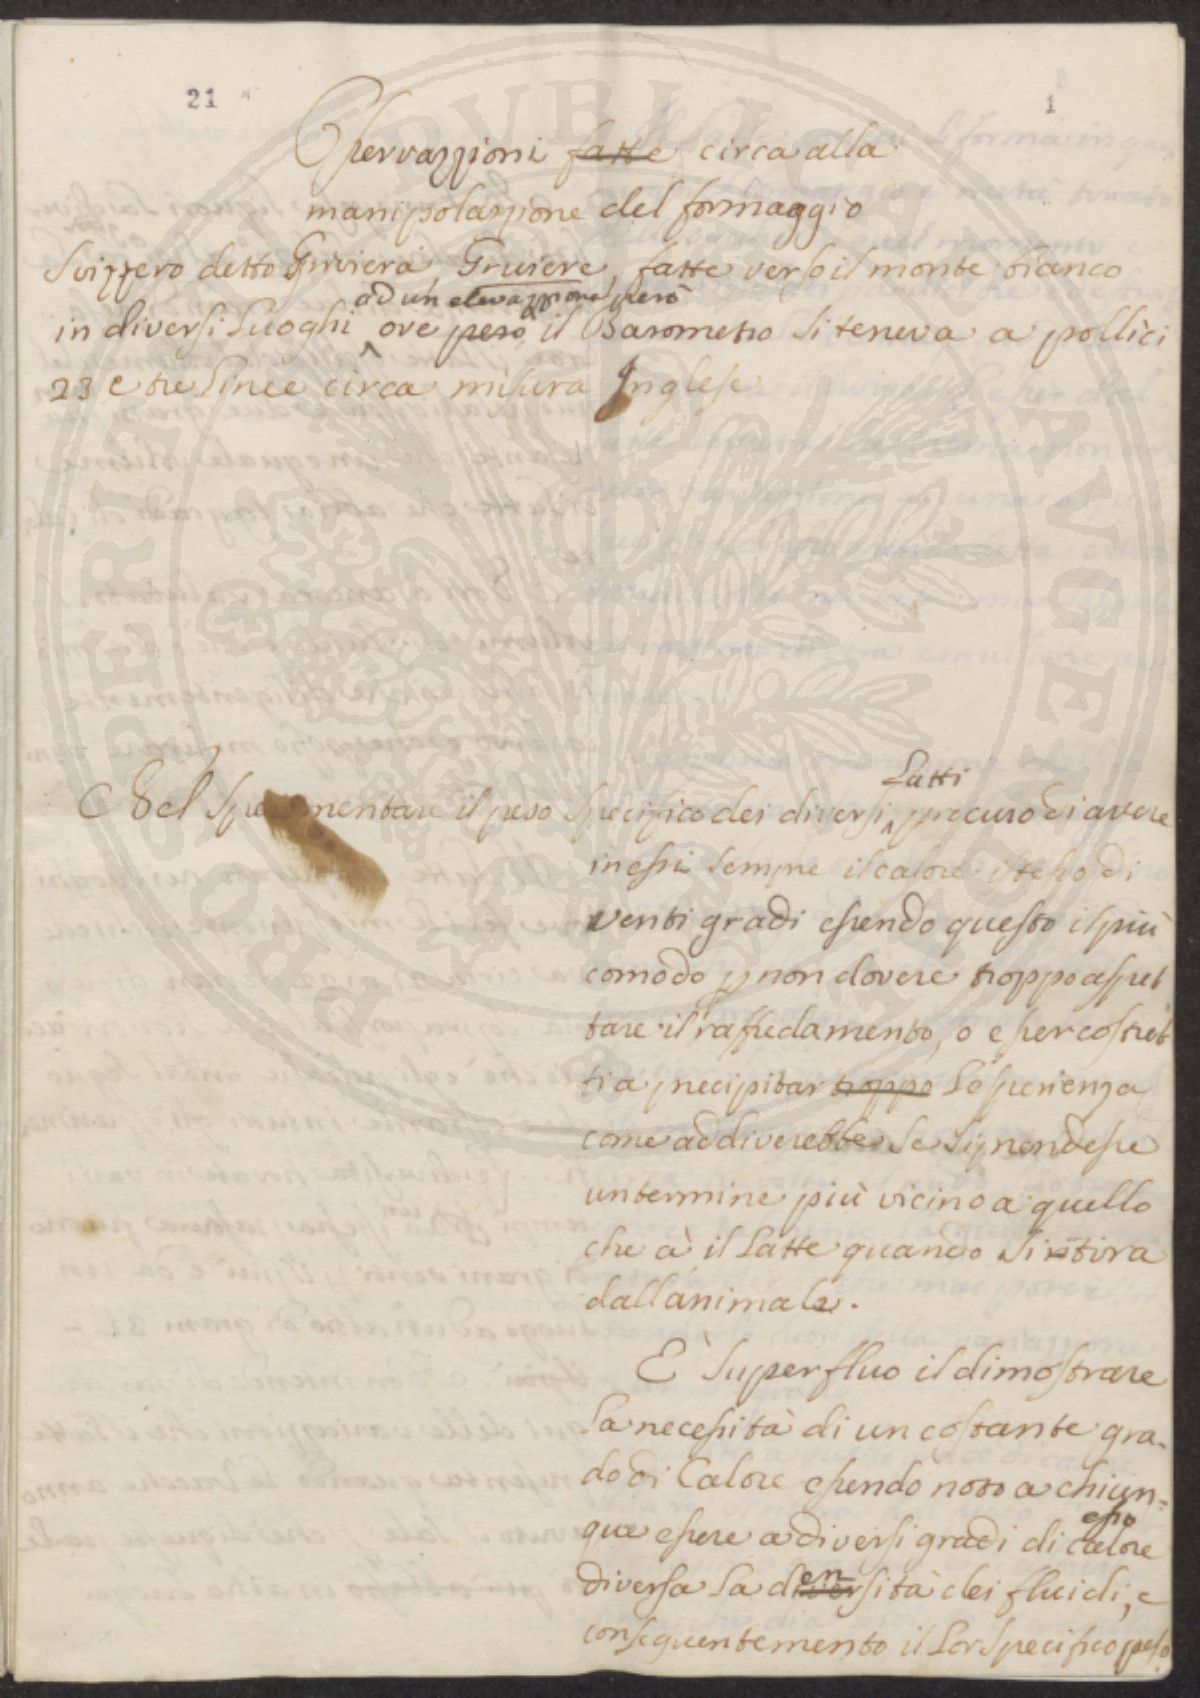 21
1
Osservazzioni fatte circa alla
manipolazzione del formaggio
Svizzero detto Gruviera, Gruiere, fatte verso il monte bianco
ad un elevazzione però
in diversi Luoghi ove però il Barometro si teneva a pollici
23 e tre Linee circa misura Inglese
Latti
Nel sperimentare il peso specifico dei diversi procuro di avere
in essi sempre il calore istesso di
venti gradi essendo questo il più
comodo p non dovere troppo aspet
tare il raffredamento, o esser costret
ti a precipitar troppo L'esperienza
come addiverebbe se si prendesse
un termine più vicino a quello
che à il Latte quando si
dall'animale.
È superfluo il dimostrare
La necessità di un costante gra-
do di Calore essendo noto a chiun-
esso
que essere a diversi gradi di calore
en
diversa La diversità dei fluidi, e
conseguentemento il Lor specifico peso.
PUBLICAE AUGENDAE PROSPERITATI